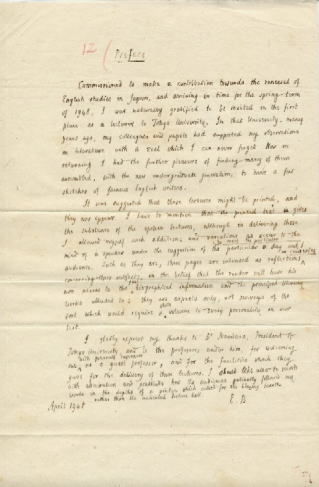 12
Preface
Commissioned to make a contribution towards the renewal of
English studies in Japan, and arriving in time for the spring-term
of 1948, I was naturally gratified to be invited in the first
place as a lecturer to Tokyo University. In that University, many
years ago, my colleagues and pupils had supported my observations
on literature with a zeal which I can never forget. Now on
returning I had the further pleasure of finding many of them
assembled, with the new undergraduate generation, to hear a few
sketches of famous English writers.
It was suggested that these lectures might be printed, and
they now appear. I have to mention that the printed text gives
the substance of the spoken lectures, although in delivering them
I allowed myself such additions and variations as occur to the
mind of a speaker under the suggestion of the particular day and
audience. Such as they are, these pages are intended as reflections
concerning their subjects, in the belief that the reader will have
access to the biographical information and the principal
works alluded to; they are aspects only, not surveys of the
sort which would require a volume to every personality in our
list.
I gladly express my thanks to Dr Nambara, President of
Tokyo University and to the professors under him, for welcoming
me as a guest professor, and for the facilities which they
gave for the delivery of these lectures. I should like also to
with admiration and gratitude how the audience patiently followed my
words in the depths of a winter which
rather than the lecture hall.
April 1948
E. B